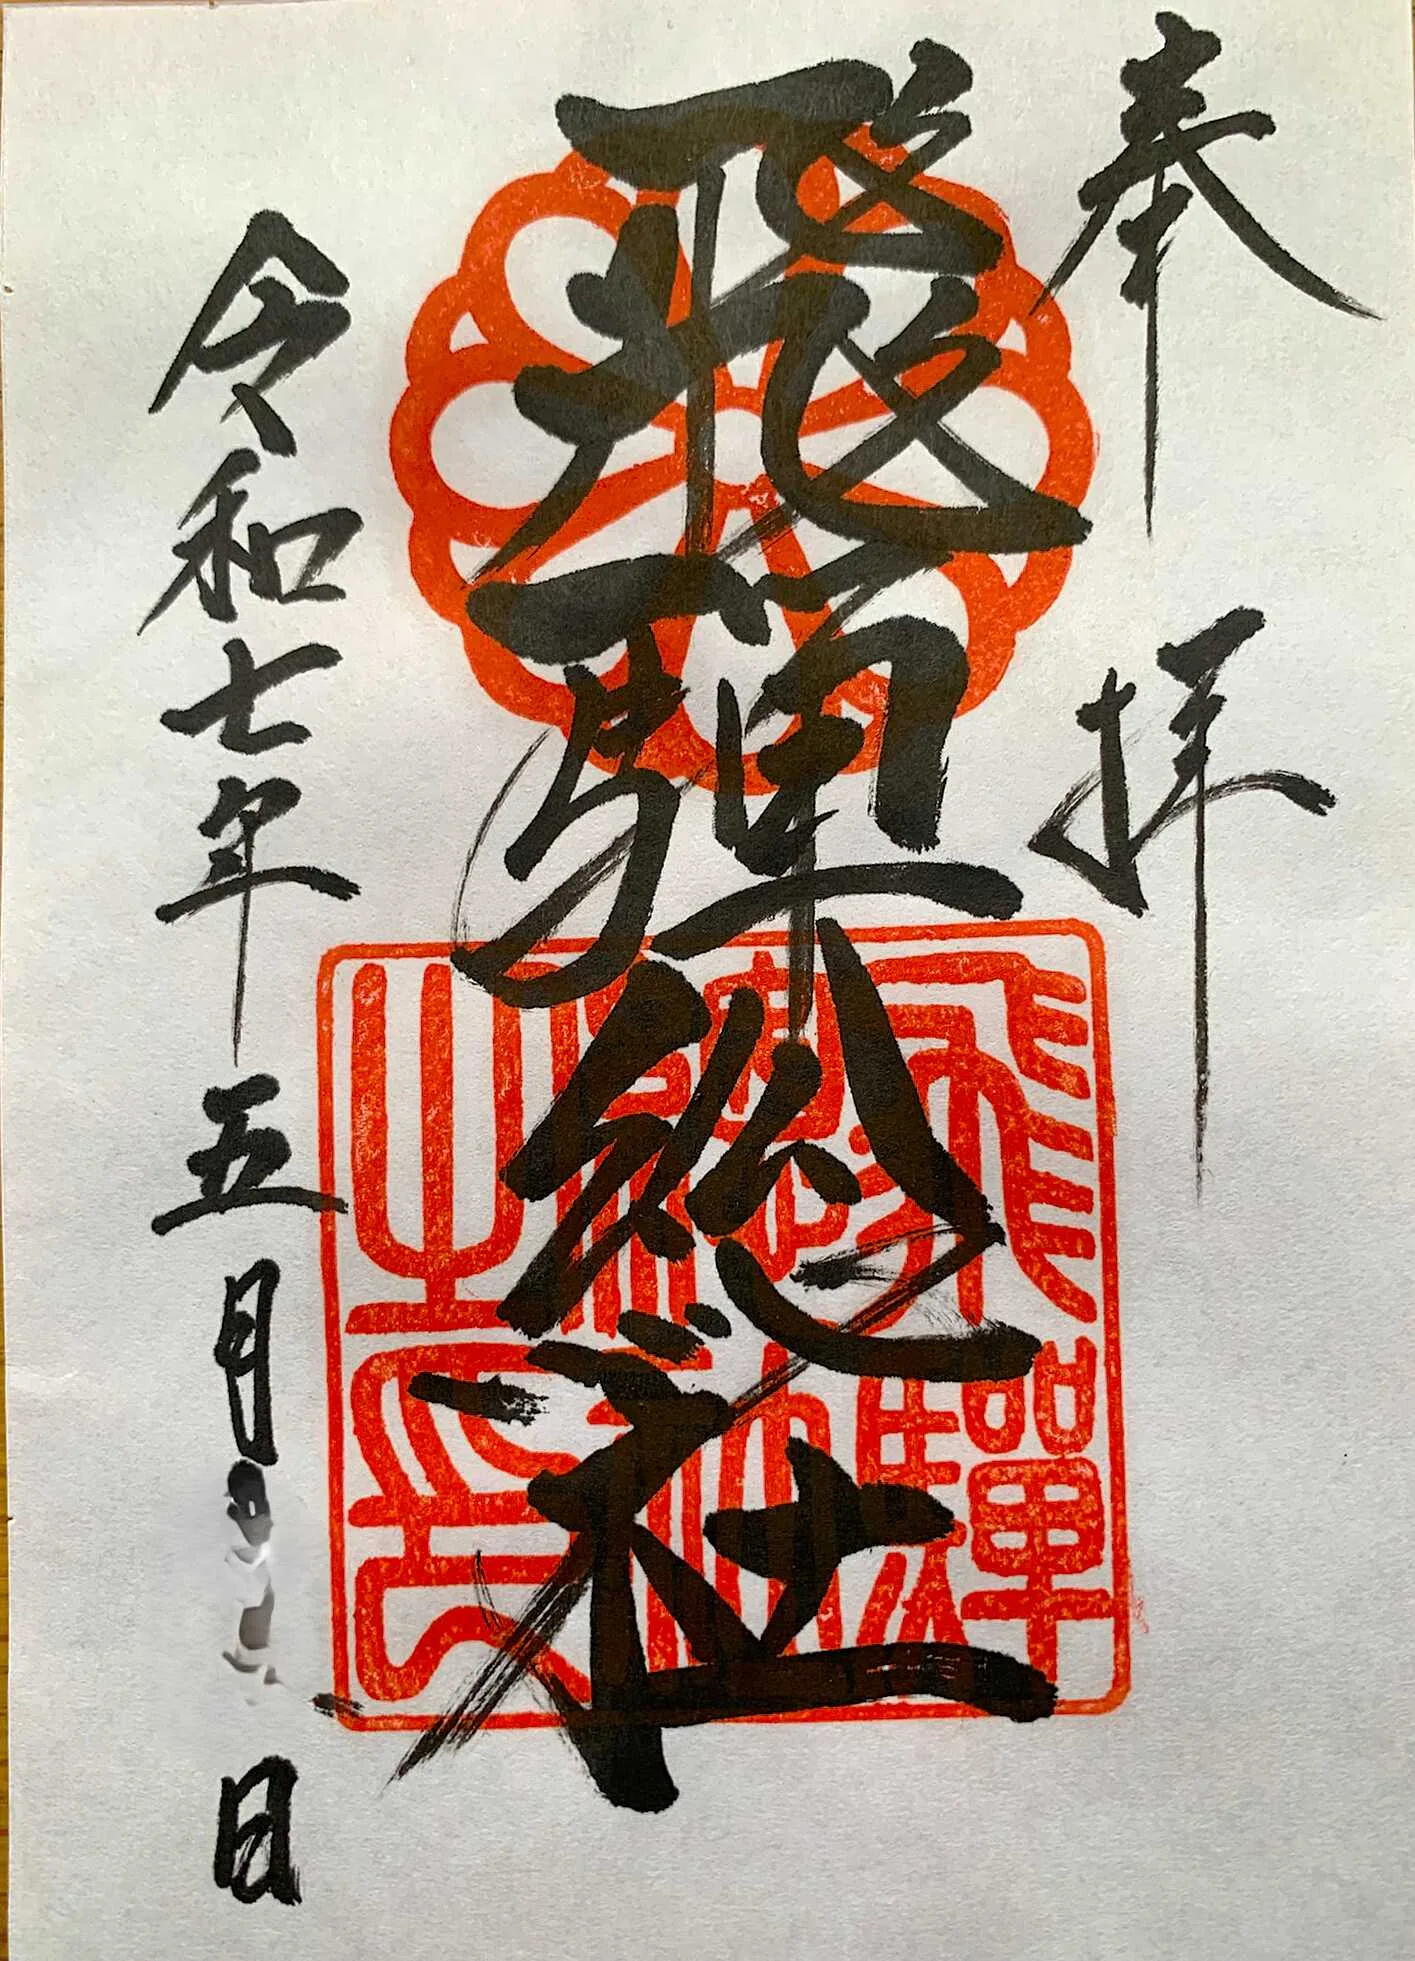 奉拝
飛騨総社
飛騨総社之印
令和七年五月 日